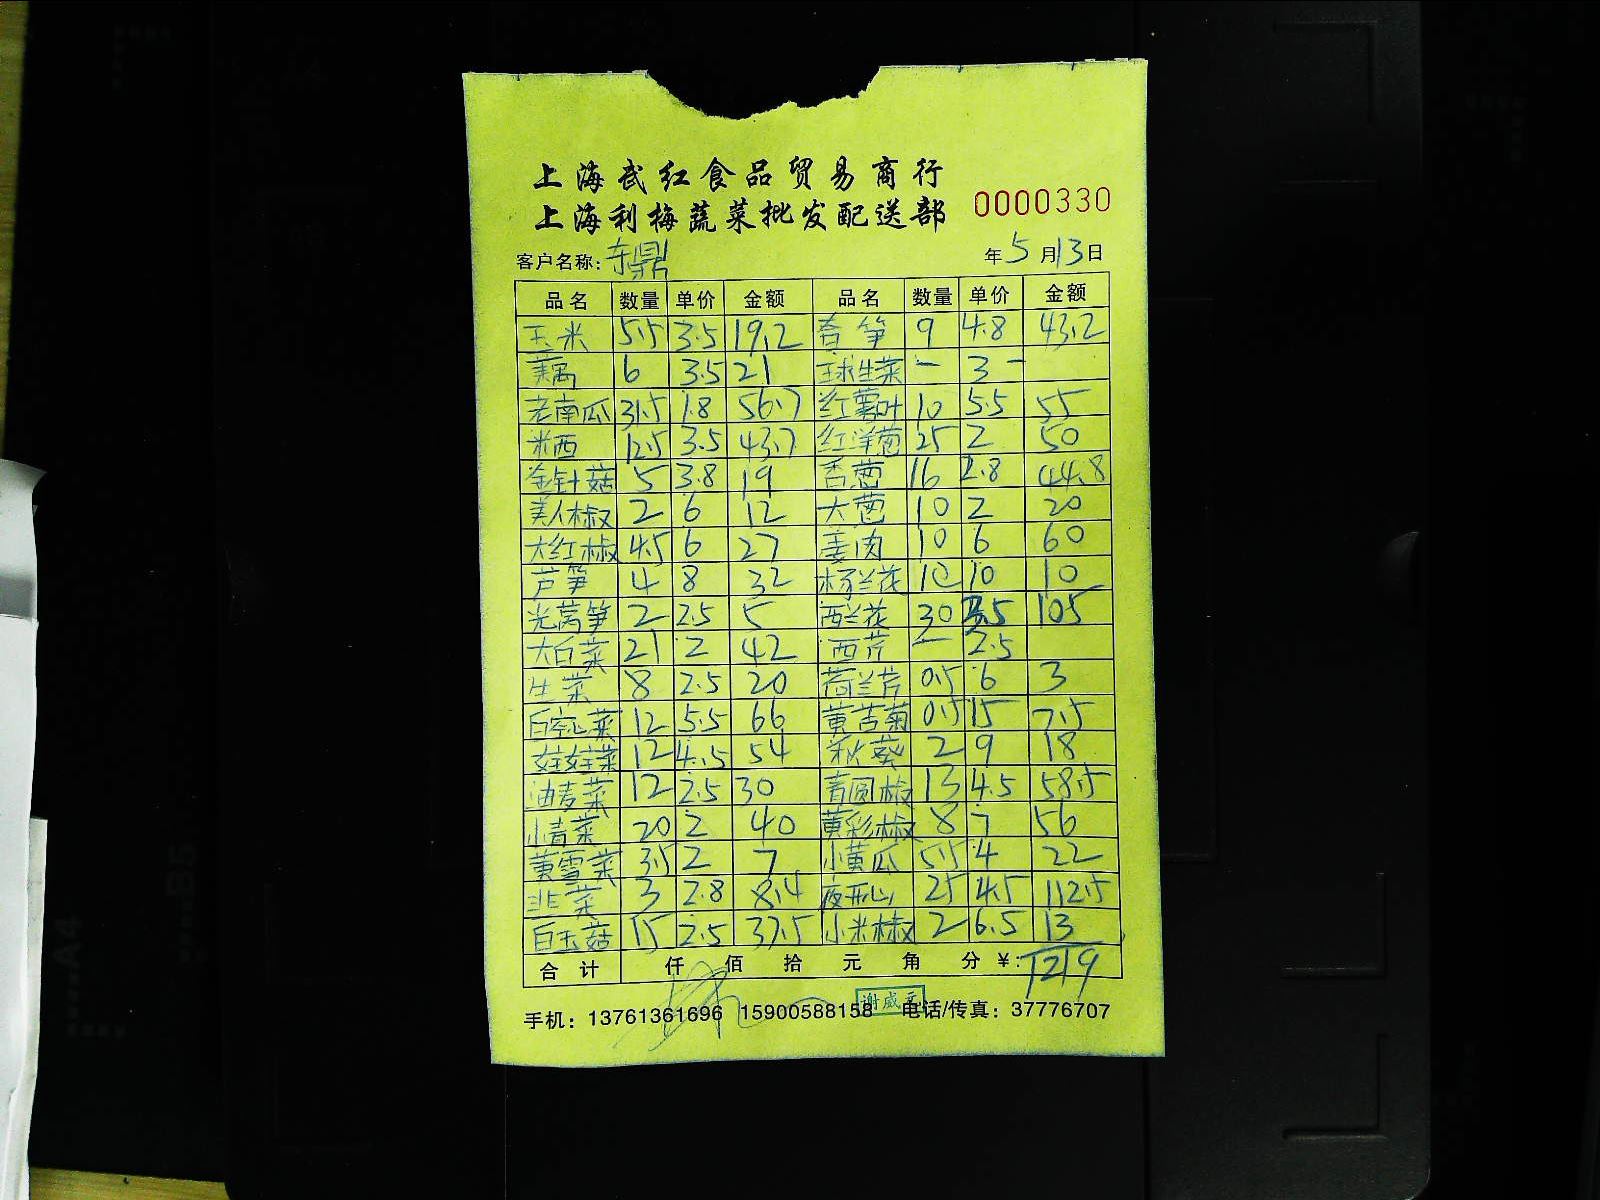 上海武红食品贸易商行
上海利梅蔬菜批发配送部 0000330
客户名称: 东鼎 年 5 月 13 日
品名 数量 单价 金额 品名 数量 单价 金额
玉米 5.5 3.5 19.2 春笋 9 4.8 43.2
6 3.5 21 球生菜 一 3 -
老南瓜 31.5 1.8 56.7 红薯叶 10 5.5 55
米西 12.5 3.5 43.7 红洋葱 25 2 50
金针菇 5 3.8 19 香葱 16 2.8 44.8
美人椒 2 6 12 大葱 10 2 20
大红椒 4.5 6 27 姜肉 10 6 60
芦笋 4 8 32 杨兰花 10 10
光莴笋 2 2.5 5 西兰花 30 3.5 105
大白菜 21 2 42 西芹 一 2.5
生菜 8 2.5 20 荷兰芹 0.5 6 3
白空心菜 12 5.5 66 黄苦菊 0.5 15 7.5
娃娃菜 12 4.5 54 秋葵 2 9 18
油麦菜 12 2.5 30 青圆椒 13 4.5 58.5
小青菜 20 2 40 黄彩椒 8 7 56
黄雪菜 3.5 2 7 小黄瓜 5.5 4 22
韭菜 3 2.8 8.4 夜开心 25 4.5 112.5
白玉菇 15 2.5 37.5 小米椒 2 6.5 13
合计 仟 佰 拾 元 角 分 ¥: 1219
谢威
手机: 13761361696 15900588158 电话/传真: 37776707